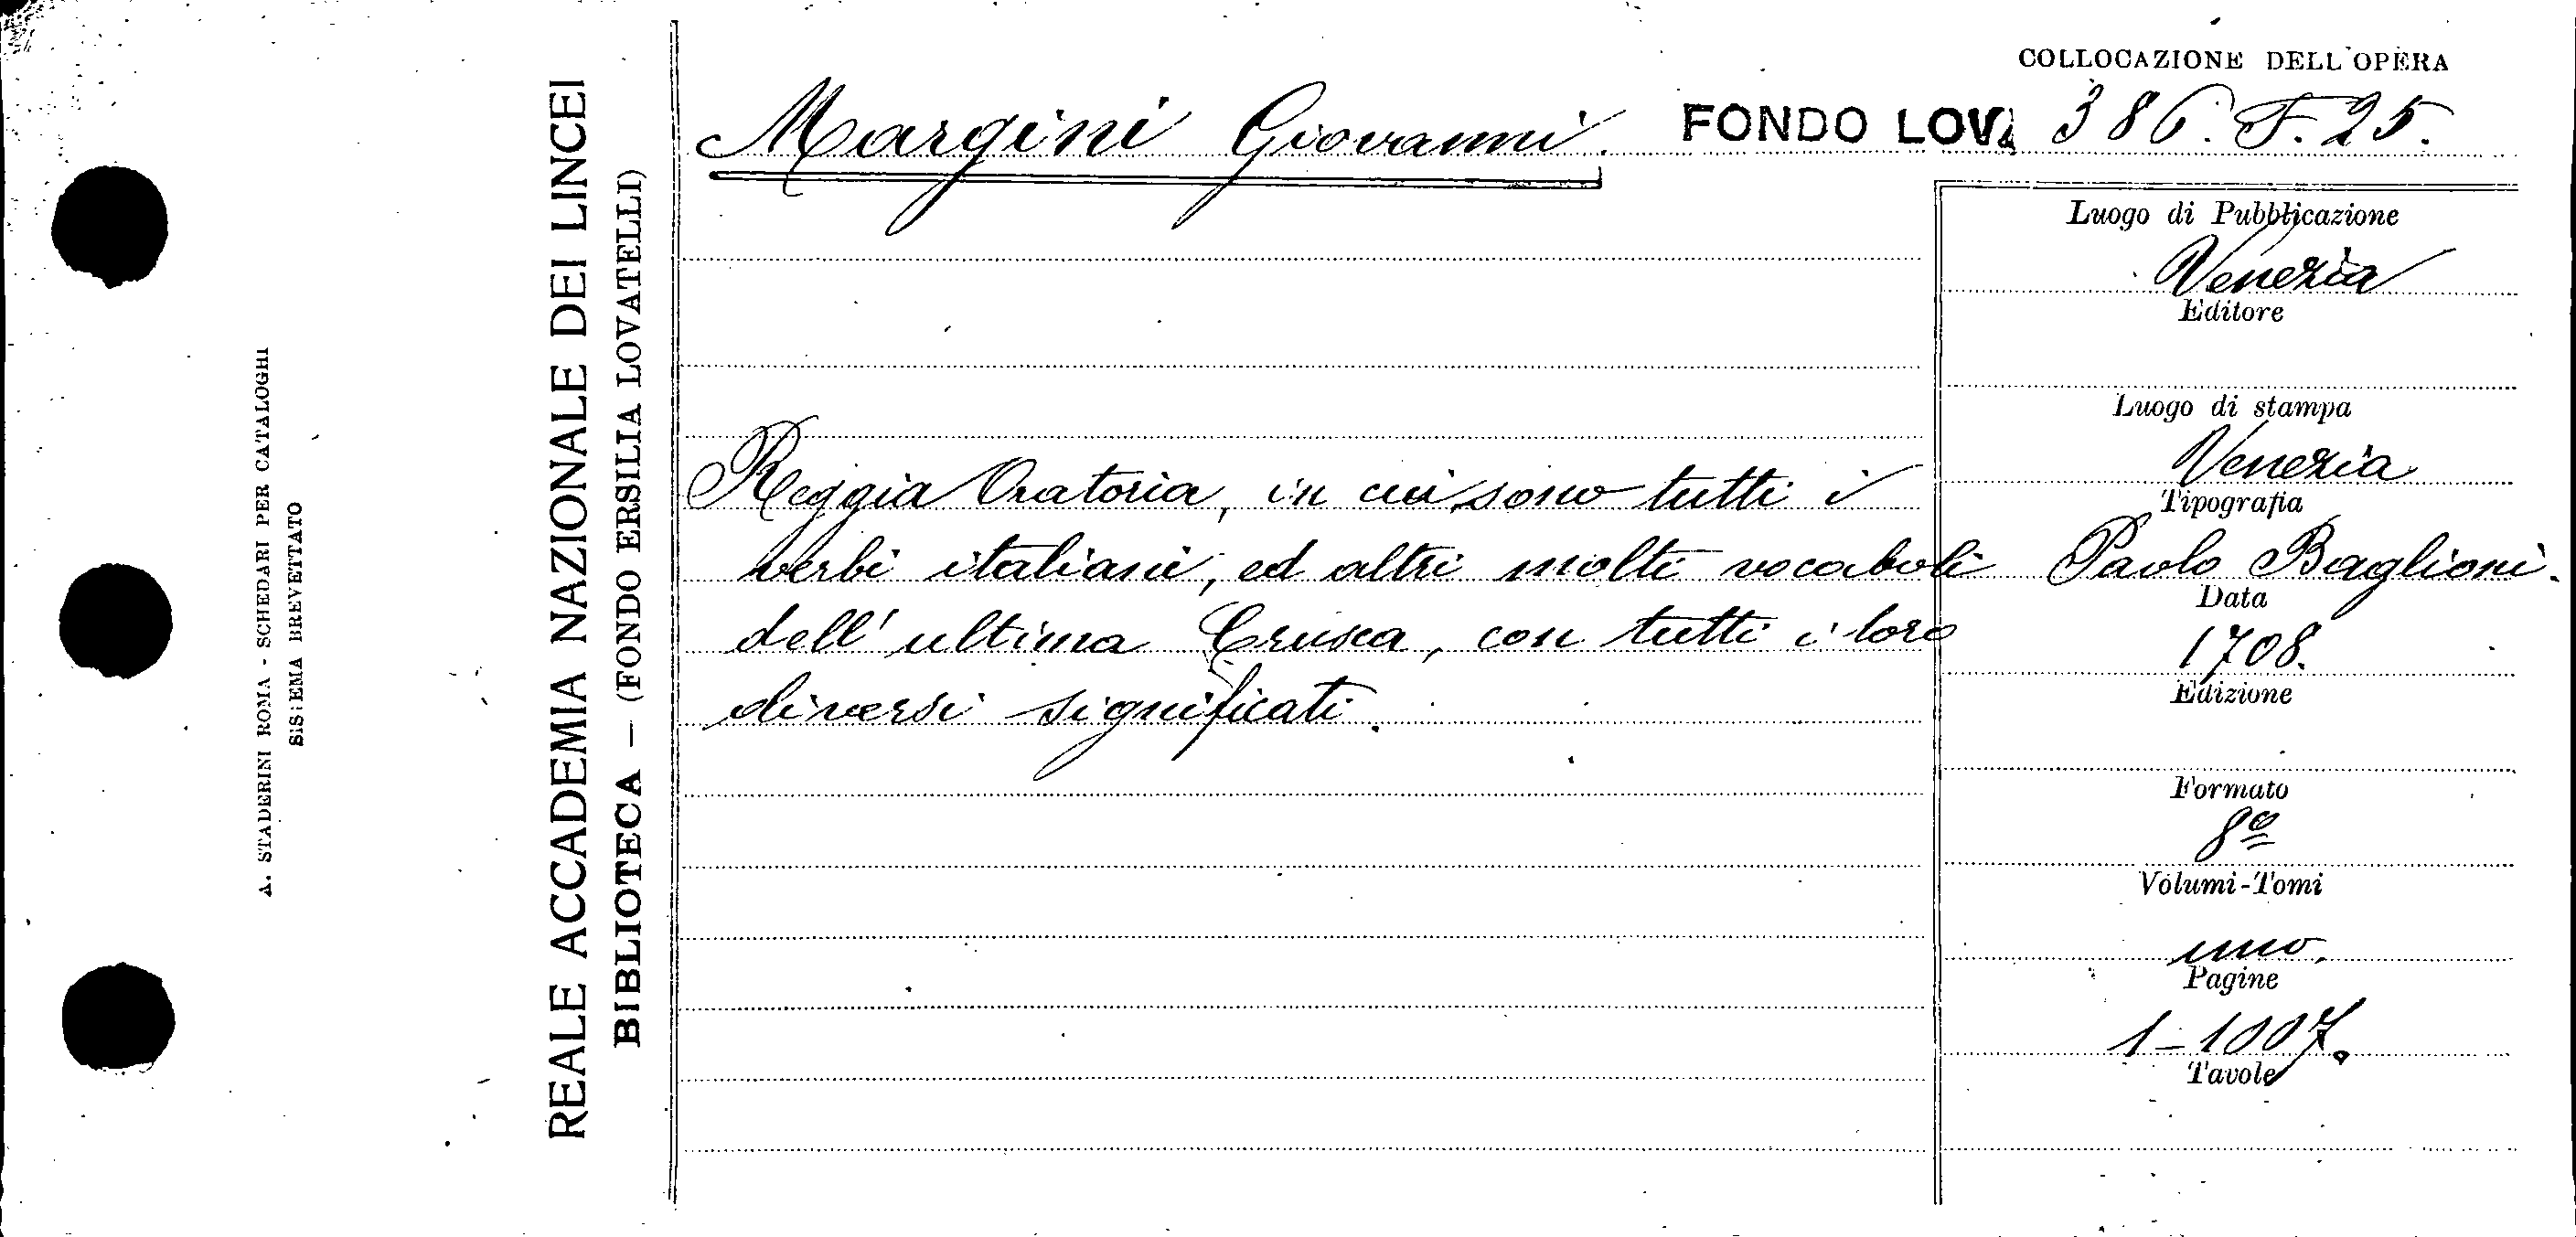 A. STADERINI ROMA - SCHEDARI PER CATALOGHI
SISTEMA BREVETTATO
REALE ACCADEMIA NAZIONALE DEI LINCEI
BIBLIOTECA — (FONDO ERSILIA LOVATELLI)
COLLOCAZIONE DELL'OPERA
Margini Giovanni. FONDO LOV. 386. F. 25.
Reggia Oratoria, in cui sono tutti i
verbi italiani, ed altri molti vocaboli
dell' ultima Crusca, con tutti i loro
diversi significati.
Luogo di Pubblicazione
Venezia
Editore
Luogo di stampa
Venezia
Tipografia
Paolo Baglioni.
Data
1708.
Edizione
Formato
8º
Volumi-Tomi
uno.
Pagine
1-1007.
Tavole